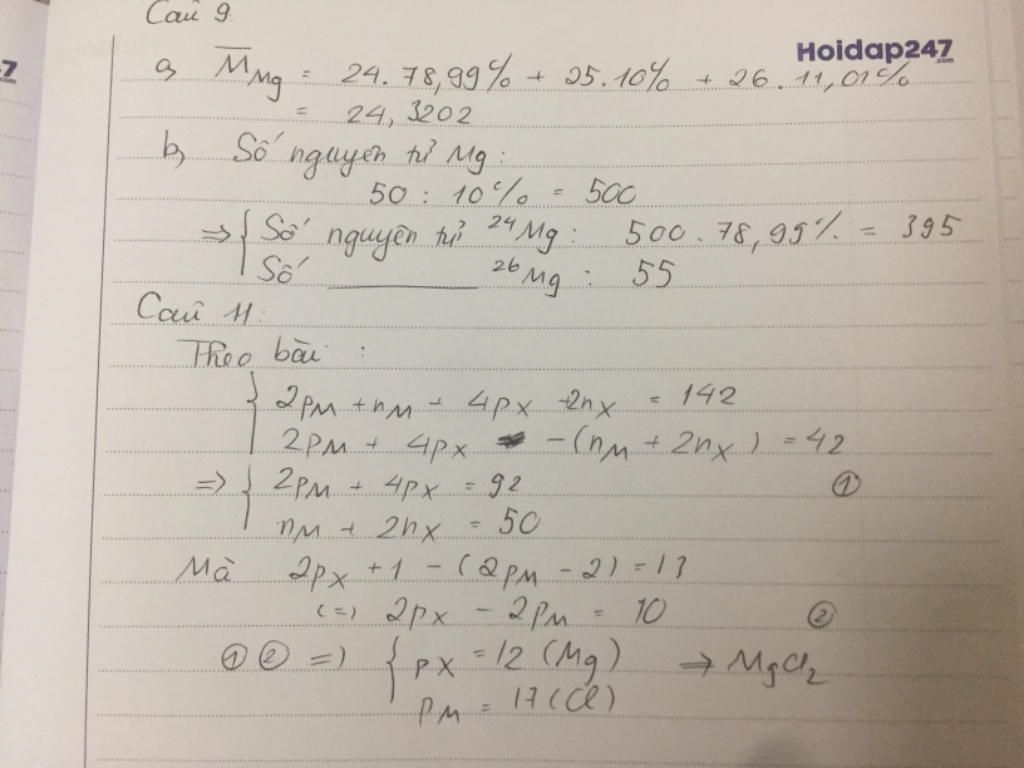 Câu 9
Hoidap247
.com
7
a, M̅Mg = 24.78,99% + 25.10% + 26.11,01%
= 24,3202
b, Số nguyên tử Mg:
50 : 10% = 500
=> { Số nguyên tử ²⁴Mg : 500.78,99% = 395
Số ²⁶Mg : 55
Câu 11:
Theo bài :
{ 2pM + nM + 4pX + 2nX = 142
2pM + 4pX - (nM + 2nX) = 42
=> { 2pM + 4pX = 92 ①
nM + 2nX = 50
Mà 2pX + 1 - (2pM - 2) = 13
(=) 2pX - 2pM = 10 ②
① ② =) { pX = 12 (Mg) => MgCl₂
pM = 17 (Cl)